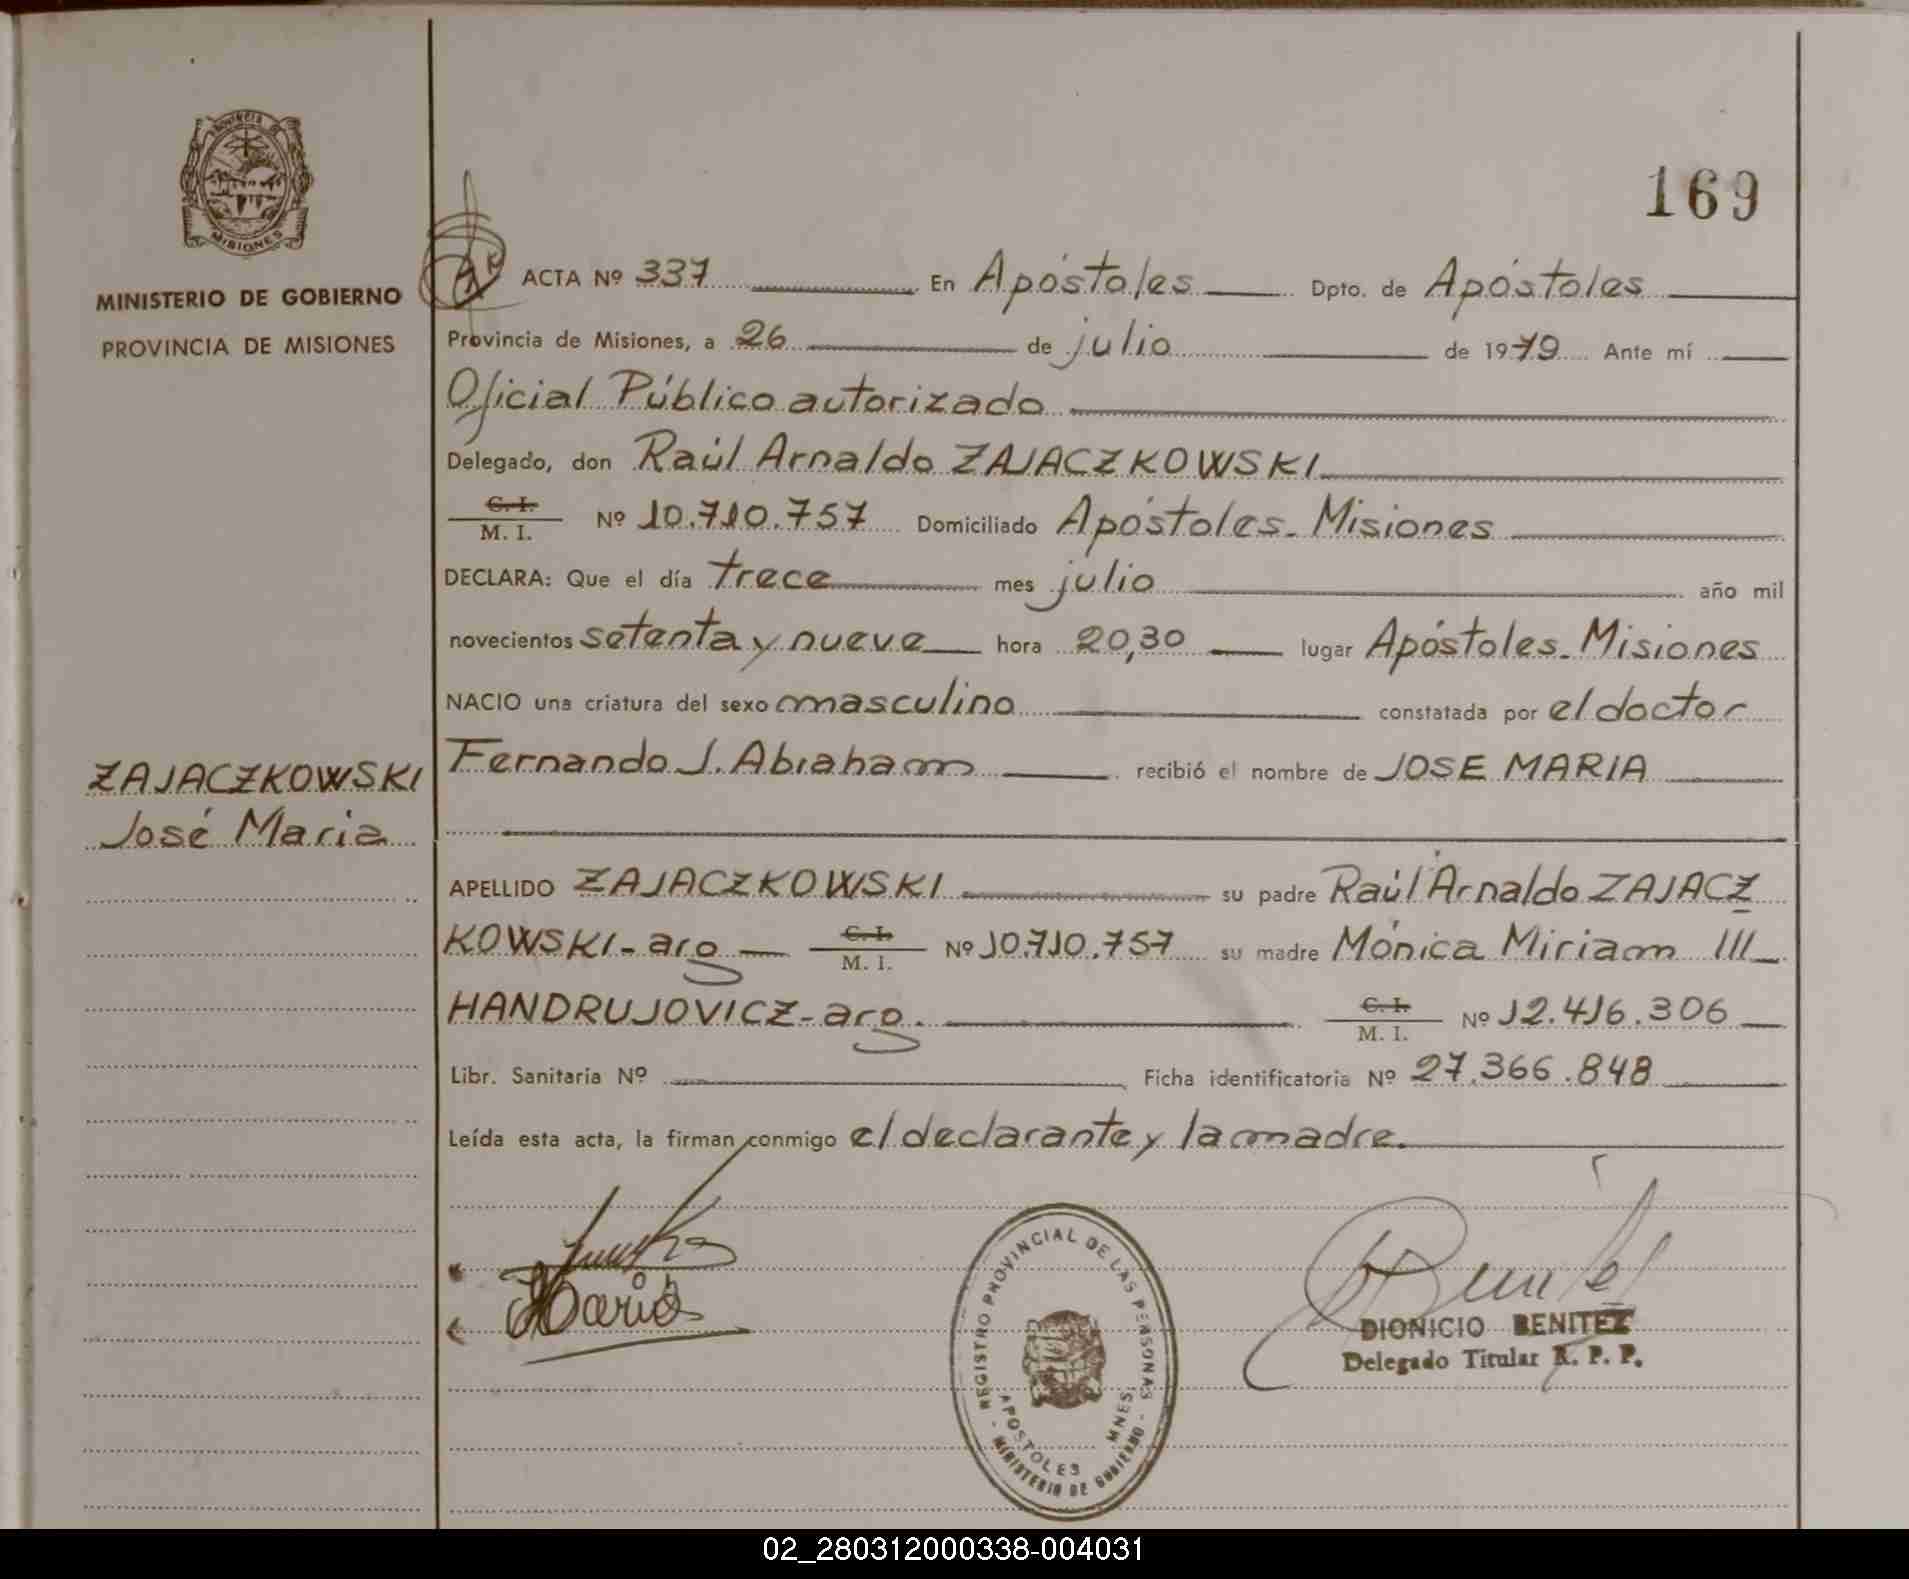 PROVINCIA DE
MISIONES
MINISTERIO DE GOBIERNO
PROVINCIA DE MISIONES
169
ACTA Nº 337 En Apóstoles Dpto. de Apóstoles
Provincia de Misiones, a 26 de julio de 1979 Ante mí
Oficial Público autorizado
Delegado, don Raúl Arnaldo ZAJACZKOWSKI
C. I.
M. I. Nº 10.710.757 Domiciliado Apóstoles - Misiones
DECLARA: Que el día trece mes julio año mil
novecientos setenta y nueve hora 20,30 lugar Apóstoles - Misiones
NACIO una criatura del sexo masculino constatada por el doctor
Fernando J. Abraham recibió el nombre de JOSE MARIA
ZAJACZKOWSKI
José Maria
APELLIDO ZAJACZKOWSKI su padre Raúl Arnaldo ZAJACZ
KOWSKI - arg C. I. M. I. Nº 10.710.757 su madre Mónica Miriam III
HANDRUJOVICZ - arg. C. I. M. I. Nº 12.416.306
Libr. Sanitaria Nº Ficha identificatoria Nº 27.366.848
Leída esta acta, la firman conmigo el declarante y la madre.
REGISTRO PROVINCIAL DE LAS PERSONAS
APOSTOLES MNES
MINISTERIO DE GOBIERNO
DIONICIO BENITEZ
Delegado Titular R. P. P.
02_280312000338-004031